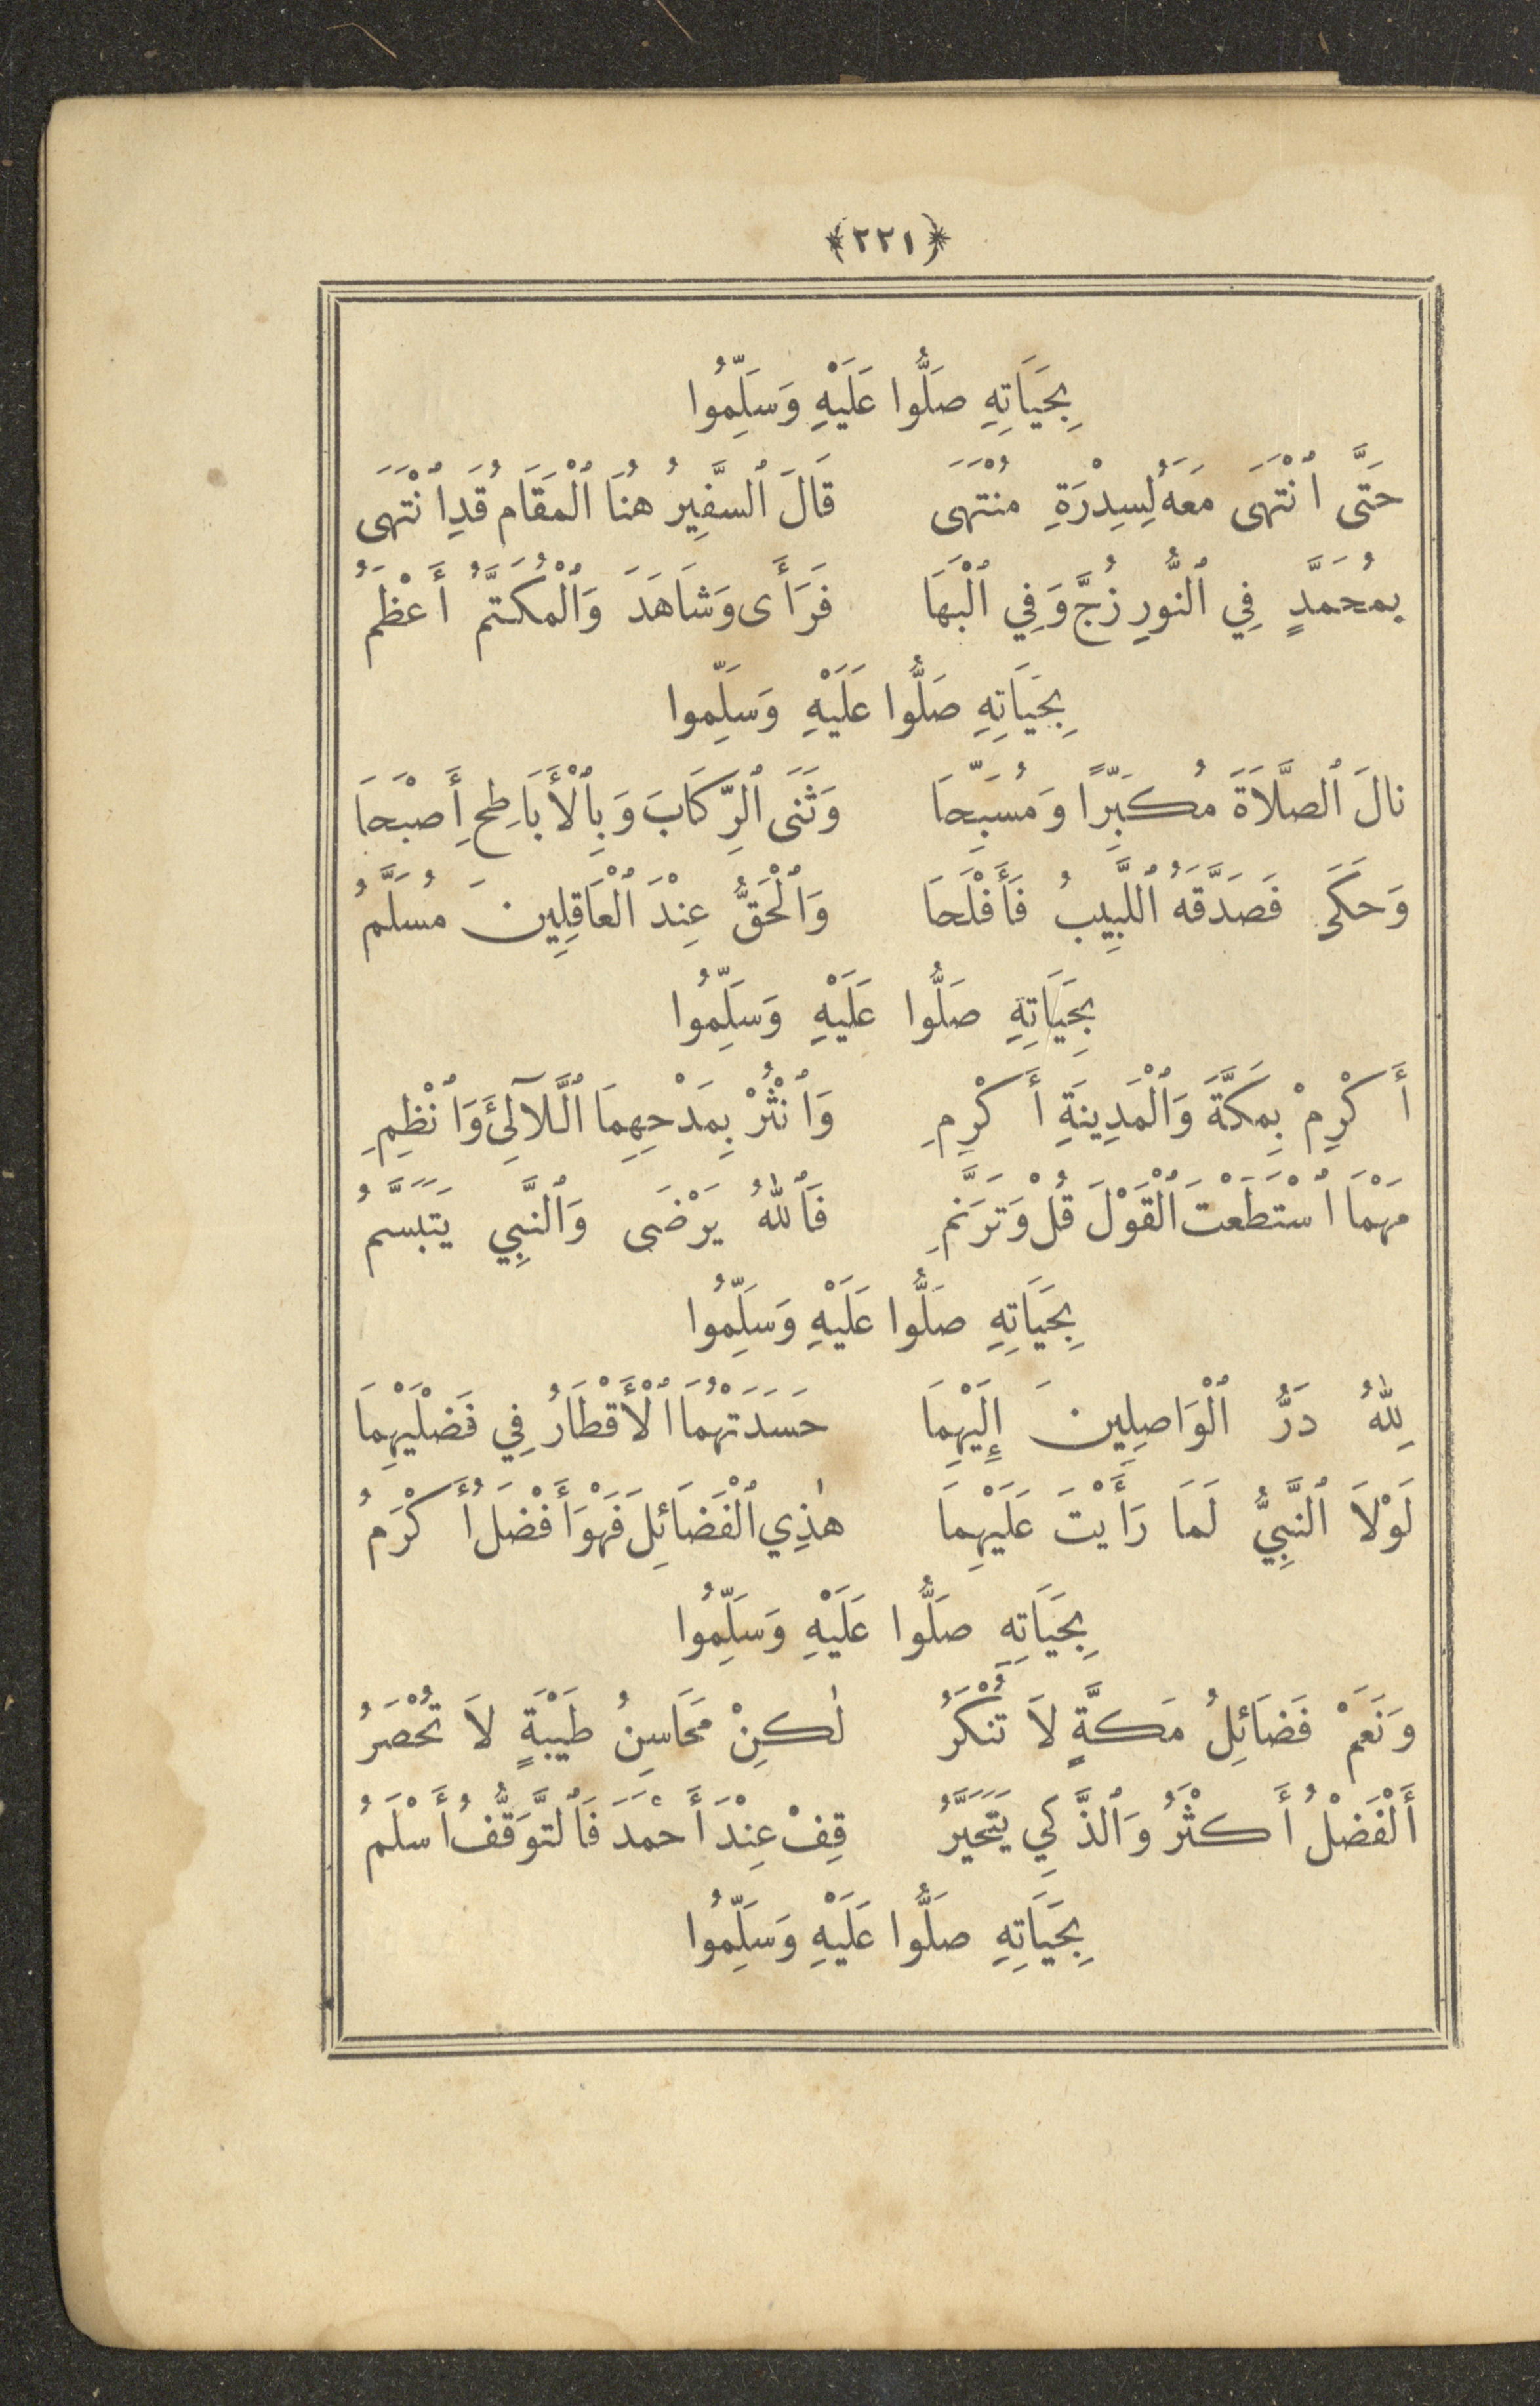 ﴿٢٢١﴾
بِحَيَاتِهِ صَلُّوا عَلَيْهِ وَسَلِّمُوا
حَتَّى ٱنْتَهَى مَعَهُ لِسِدْرَةِ مُنْتَهَى قَالَ ٱلسَّفِيرُ هُنَا ٱلْمَقَامُ قَدِ ٱنْتَهَى
بمُحَمَّدٍ فِي ٱلنُّورِ زُجَّ وَفِي ٱلْبَهَا فَرَأَى وَشَاهَدَ وَٱلْمُكَتَّمُ أَعْظَمُ
بِحَيَاتِهِ صَلُّوا عَلَيْهِ وَسَلِّموا
نالَ ٱلصَّلاَةَ مُكَبِّرًا وَمُسَبِّحَا وَثَنَى ٱلرِّكَابَ وَبِٱلْأَبَاطِحِ أَصْبَحَا
وَحَكَى فَصَدَّقَهُ ٱللَّبِيبُ فَأَفْلَحَا وَٱلْحَقُّ عِنْدَ ٱلْعَاقِلِينَ مُسَلَّمُ
بِحَيَاتِهِ صَلُّوا عَلَيْهِ وَسَلِّمُوا
أَكْرِمْ بِمَكَّةَ وَٱلْمَدِينَةِ أَكْرِمِ وَٱنْثُرْ بِمَدْحِهِمَا ٱللَّآلِئَ وَٱنْظِمِ
مَهْمَا ٱسْتَطَعْتَ ٱلْقَوْلَ قُلْ وَتَرَنَّمِ فَٱللهُ يَرْضَى وَٱلنَّبِي يَتَبَسَّمُ
بِحَيَاتِهِ صَلُّوا عَلَيْهِ وَسَلِّمُوا
لِلهُ دَرُّ ٱلْوَاصِلِينَ إِلَيْهِمَا حَسَدَتْهُمَا ٱلْأَقْطَارُ فِي فَضْلَيْهِمَا
لَوْلاَ ٱلنَّبِيُّ لَمَا رَأَيْتَ عَلَيْهِمَا هٰذِي ٱلْفَضَائِلَ فَهْوَ أَفْضَلُ أَكْرَمُ
بِحَيَاتِهِ صَلُّوا عَلَيْهِ وَسَلِّمُوا
وَنَعَمْ فَضَائِلُ مَكَّةٍ لاَ تُنْكَرُ لٰكِنْ مَحَاسِنُ طَيْبَةٍ لاَ تُحْصَرُ
أَلْفَضْلُ أَكْثَرُ وَٱلذَّكِي يَتَحَيَّرُ قِفْ عِنْدَ أَحْمَدَ فَٱلتَّوَقُّفُ أَسْلَمُ
بِحَيَاتِهِ صَلُّوا عَلَيْهِ وَسَلِّمُوا